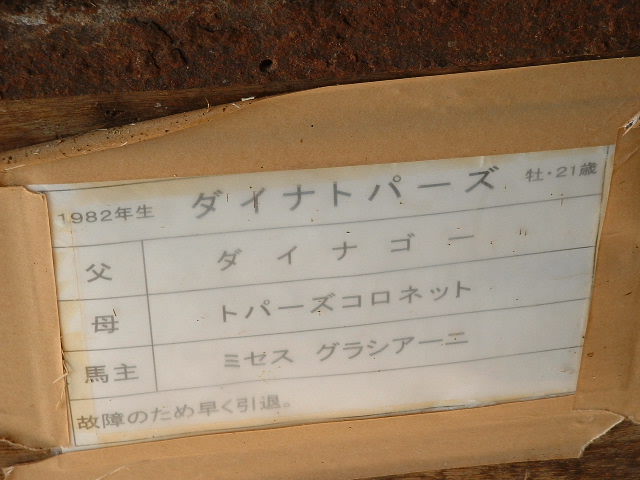 1982年生 ダイナトパーズ 牡・21歳
父 ダイナゴー
母 トパーズコロネット
馬主 ミゼス グラシアーニ
故障のため早く引退。